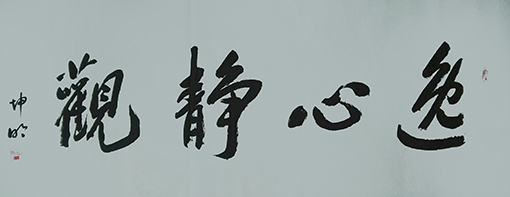 逸心静觀
坤明